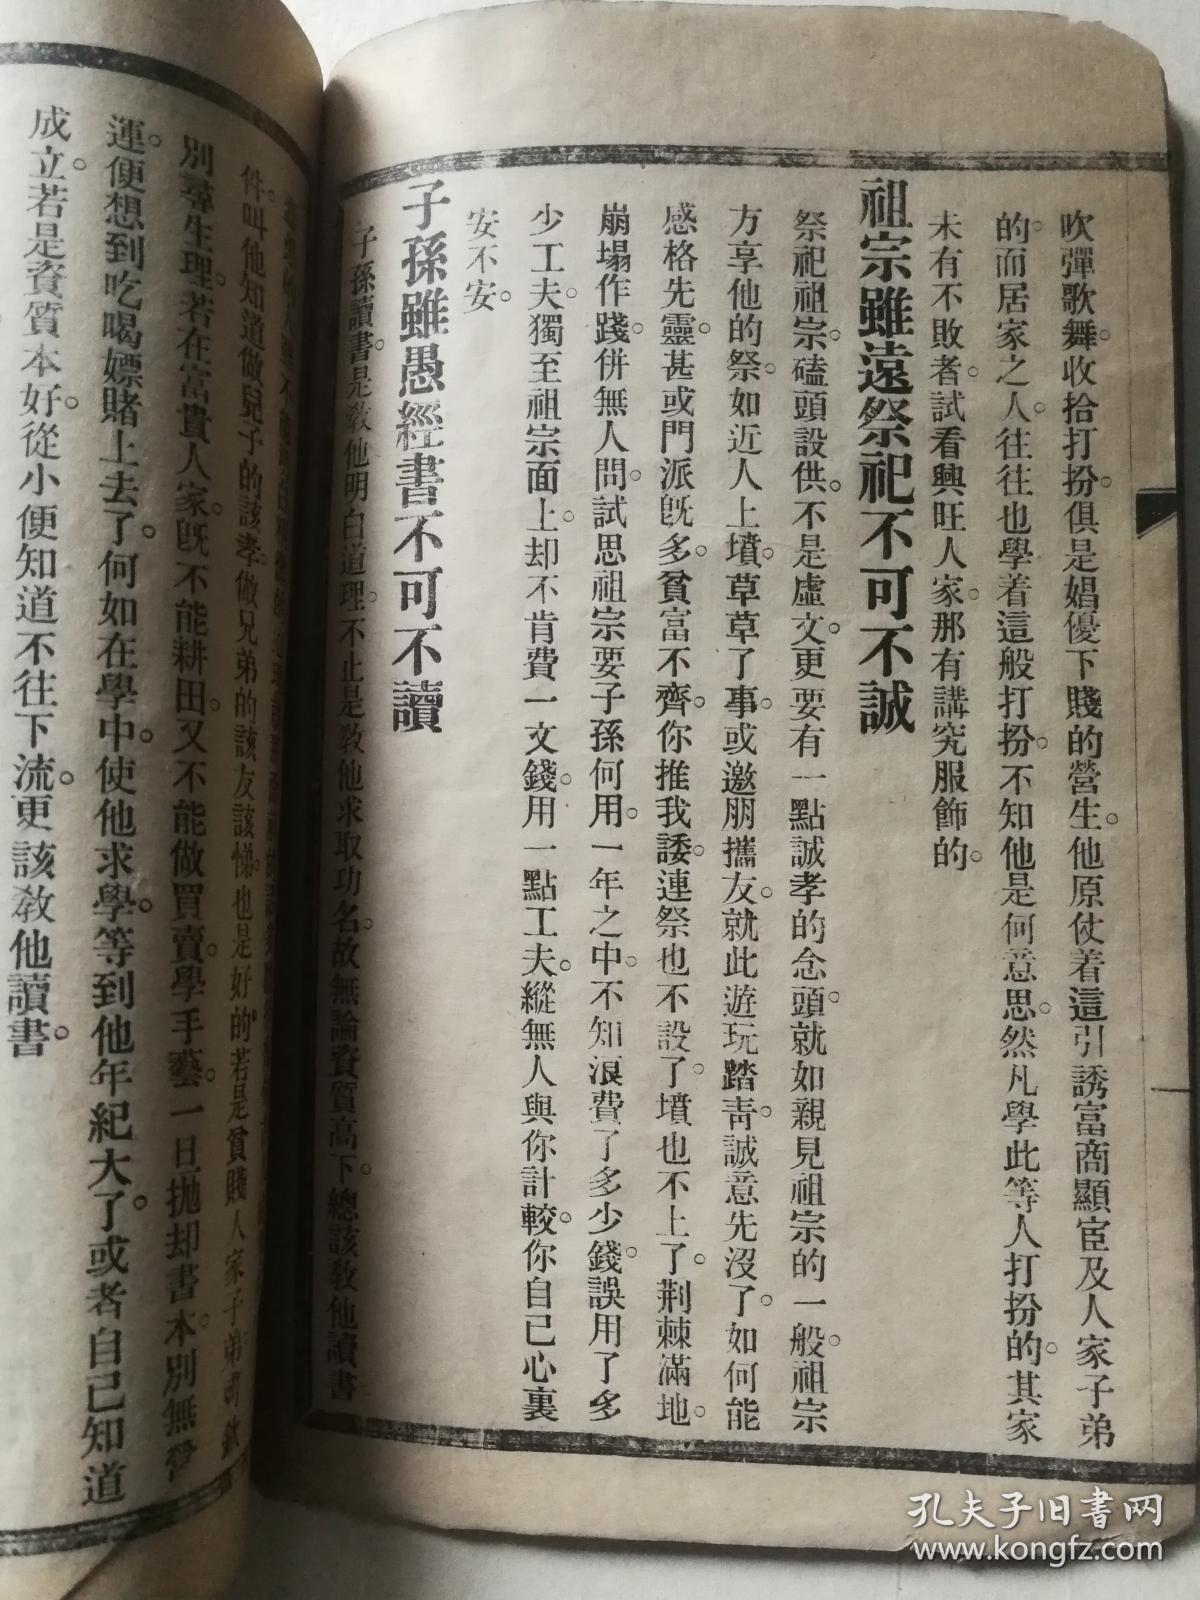 吹彈歌舞。收拾打扮。俱是娼優下賤的營生。他原仗着這引誘富商顯宦及人家子弟
的。而居家之人。往往也學着這般打扮。不知他是何意思。然凡學此等人打扮的。其家
未有不敗者。試看興旺人家。那有講究服飾的。
祖宗雖遠祭祀不可不誠
祭祀祖宗。磕頭設供。不是虛文。更要有一點誠孝的念頭。就如親見祖宗的一般。祖宗
方享他的祭。如近人上墳。草草了事。或邀朋攜友。就此遊玩踏靑。誠意先沒了。如何能
感格先靈。甚或門派旣多。貧富不齊。你推我諉。連祭也不設了。墳也不上了。荆棘滿地。
崩塌作踐。併無人問。試思祖宗要子孫何用。一年之中。不知浪費了多少錢。誤用了多
少工夫。獨至祖宗面上。却不肯費一文錢。用一點工夫。縱無人與你計較。你自己心裏
安不安。
子孫雖愚經書不可不讀
子孫讀書。是敎他明白道理。不止是敎他求取功名。故無論資質高下。總該敎他讀書
件。叫他知道做兒子的該孝。做兄弟的該友該悌。也是好的。若是貧賤人家子弟
別尋生理。若在富貴人家。旣不能耕田。又不能做買賣。學手藝。一旦抛却書本。別無營
運。便想到吃喝嫖賭上去了。何如在學中。使他求學。等到他年紀大了。或者自己知道
成立。若是資質本好。從小便知道不往下流。更該敎他讀書。
孔夫子旧书网
www.kongfz.com